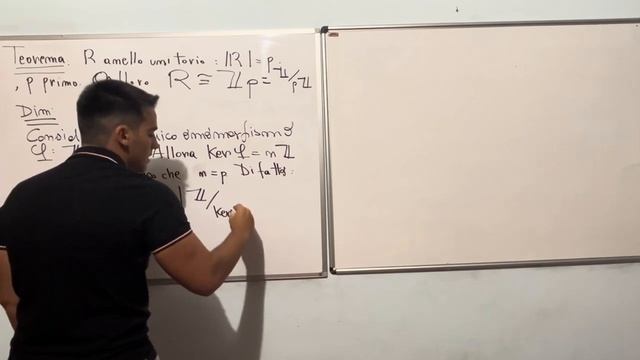 Teorema. R anello unitario: |R| = p,
, p primo. Allora R ≅ ℤp = ℤ/pℤ
Dim:
Consid ico omomorfismo
φ: ℤ Allora Ker φ = nℤ
che n = p Difatti:
| ℤ/Ker